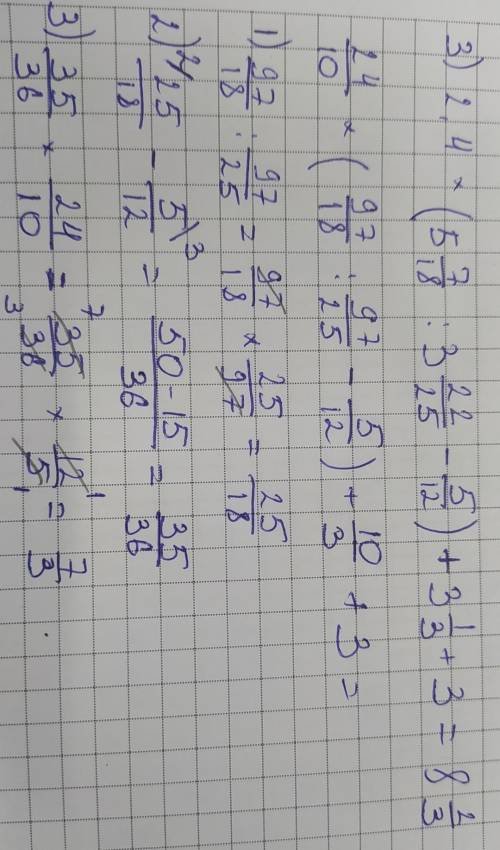 3) 2,4 × (5 7/18 : 3 22/25 − 5/12) + 3 1/3 + 3 = 8 2/3
24/10 × (97/18 : 97/25 − 5/12) + 10/3 + 3 =
1) 97/18 : 97/25 = 97/18 × 25/97 = 25/18
2) 2/ 25/18 − 5/12 \3 = 50-15/36 = 35/36
3) 35/36 × 24/10 = 7 35/36 3 × 12/5 1 1 = 7/3